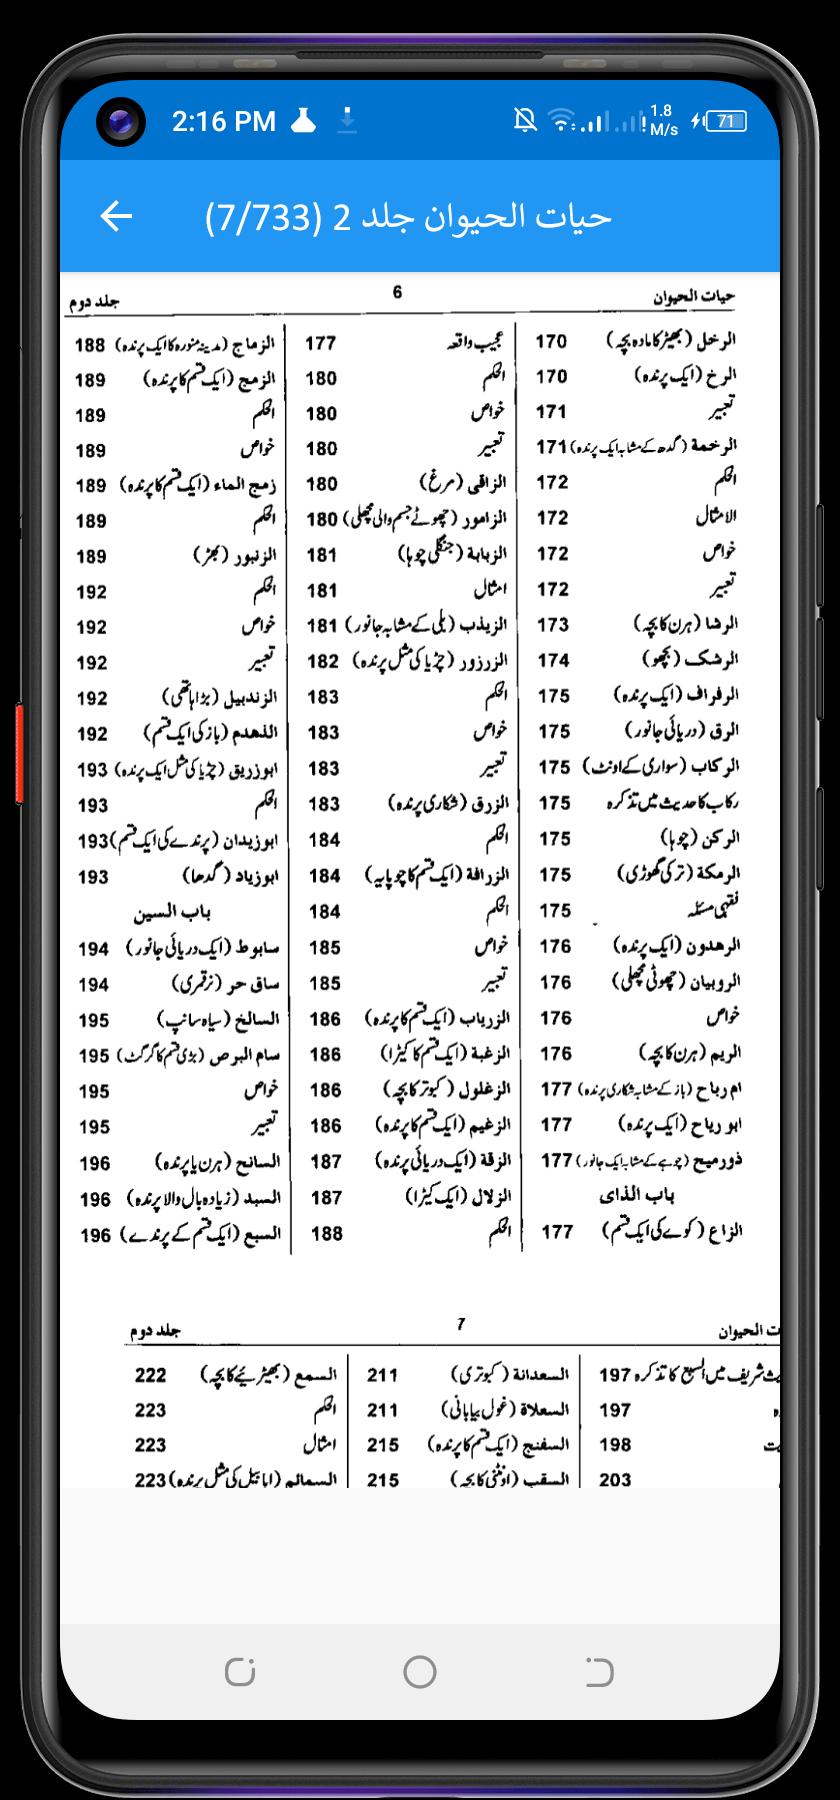 2:16 PM
1.8 M/s
71
حیات الحیوان جلد 2 (7/733)
حیات الحیوان 6 جلد دوم
الرخل (بھیڑ کا مادہ بچہ) 170
الرخ (ایک پرندہ) 170
تعبیر 171
الرخمة (گدھ کے مشابہ ایک پرندہ) 171
الحکم 172
الامثال 172
خواص 172
تعبیر 172
الرشا (ہرن کا بچہ) 173
الرشک (بچھو) 174
الرفراف (ایک پرندہ) 175
الرق (دریائی جانور) 175
الرکاب (سواری کے اونٹ) 175
رکاب کا حدیث میں تذکرہ 175
الرکن (چوہا) 175
الرمکة (ترکی گھوڑی) 175
فقہی مسئلہ 175
الرھدون (ایک پرندہ) 176
الروبیان (چھوٹی مچھلی) 176
خواص 176
الریم (ہرن کا بچہ) 176
ام رباح (باز کے مشابہ شکاری پرندہ) 177
ابو ریاح (ایک پرندہ) 177
ذورمیح (چوہے کے مشابہ ایک جانور) 177
باب الذای
الزاغ (کوے کی ایک قسم) 177
عجیب واقعہ 177
الحکم 180
خواص 180
تعبیر 180
الزاقی (مرغ) 180
الزامور (چھوٹے جسم والی مچھلی) 180
الزبابة (جنگلی چوہا) 181
امثال 181
الزبذب (بلی کے مشابہ جانور) 181
الزرزور (چڑیا کی مثل پرندہ) 182
الحکم 183
خواص 183
تعبیر 183
الزرق (شکاری پرندہ) 183
الحکم 184
الزرافة (ایک قسم کا چوپایہ) 184
الحکم 184
خواص 185
تعبیر 185
الزریاب (ایک قسم کا پرندہ) 186
الزغبة (ایک قسم کا کیڑا) 186
الزغلول (کبوتر کا بچہ) 186
الزغیم (ایک قسم کا پرندہ) 186
الزقة (ایک دریائی پرندہ) 187
الزلال (ایک کیڑا) 187
الحکم 188
الزماج (مدینہ منورہ کا ایک پرندہ) 188
الزمج (ایک قسم کا پرندہ) 189
الحکم 189
خواص 189
زمج الماء (ایک قسم کا پرندہ) 189
الحکم 189
الزنبور (بھڑ) 189
الحکم 192
خواص 192
تعبیر 192
الزندبیل (بڑا ہاتھی) 192
الذھدم (باز کی ایک قسم) 192
ابوزریق (چڑیا کی مثل ایک پرندہ) 193
الحکم 193
ابوزیدان (پرندے کی ایک قسم) 193
ابوزیاد (گدھا) 193
باب السین
سابوط (ایک دریائی جانور) 194
ساق حر (نر قمری) 194
السالخ (سیاہ سانپ) 195
سام ابرص (بڑی قسم کا گرگٹ) 195
خواص 195
تعبیر 195
السانح (ہرن یا پرندہ) 196
السبد (زیادہ بال والا پرندہ) 196
السبع (ایک قسم کے پرندے) 196
ت الحیوان 7 جلد دوم
شریف میں السبع کا تذکرہ 197
197
198
203
السعدانة (کبوتری) 211
السعلاة (غول بیابانی) 211
السفنج (ایک قسم کا پرندہ) 215
السقب (اونٹنی کا بچہ) 215
السمع (بھیڑیئے کا بچہ) 222
الحکم 223
امثال 223
السمائم (ابابیل کی مثل پرندہ) 223